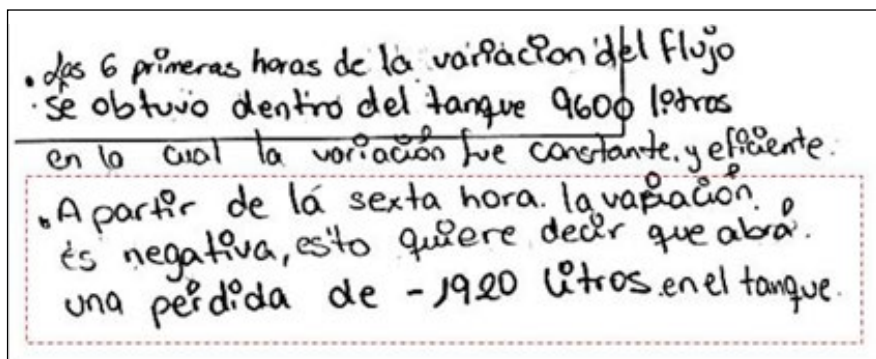 • Las 6 primeras horas de la variación del flujo
se obtuvo dentro del tanque 9600 litros
en la cual la variación fue constante. y eficiente.
• A partir de la sexta hora. la variación.
és negativa, esto quiere decir que abrá.
una pérdida de -1920 litros. en el tanque.